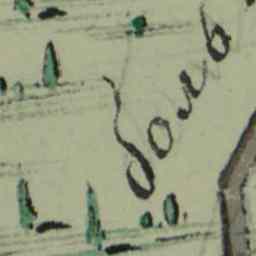 боль